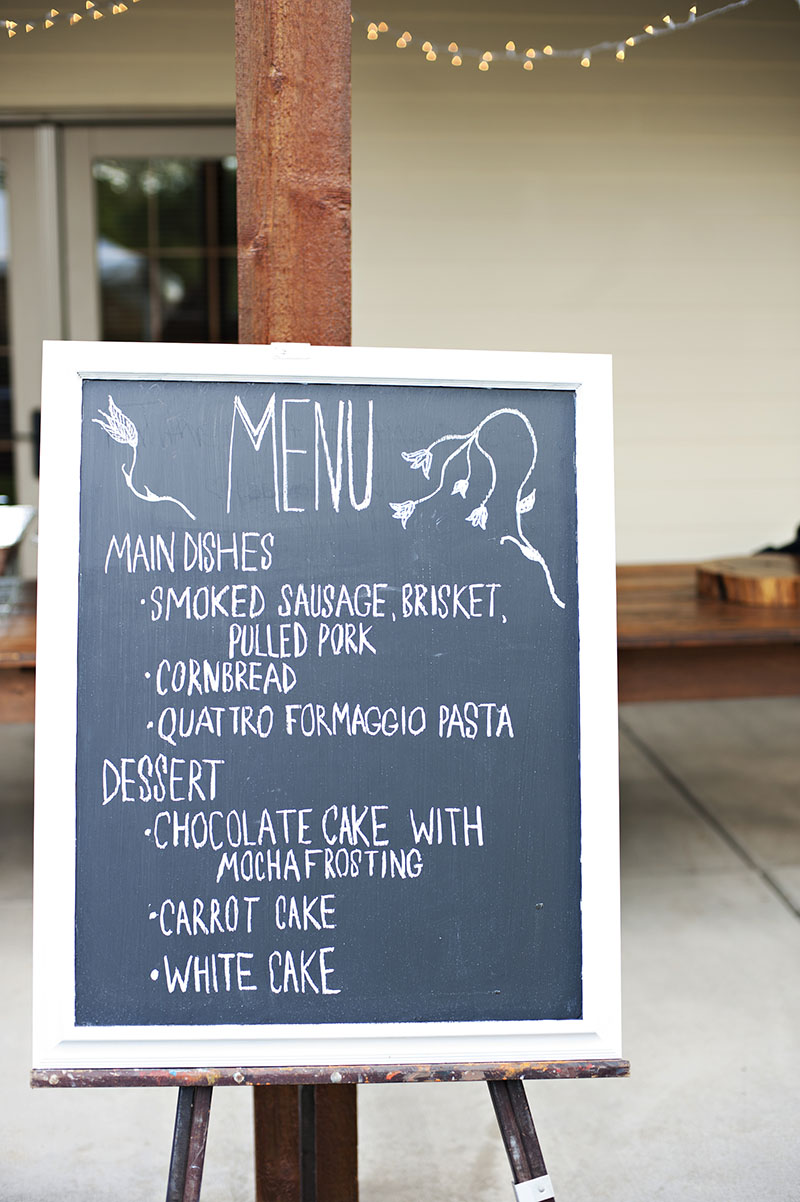 MENU
MAIN DISHES
·SMOKED SAUSAGE, BRISKET,
PULLED PORK
·CORNBREAD
·QUATTRO FORMAGGIO PASTA
DESSERT
·CHOCOLATE CAKE WITH
MOCHA FROSTING
·CARROT CAKE
·WHITE CAKE